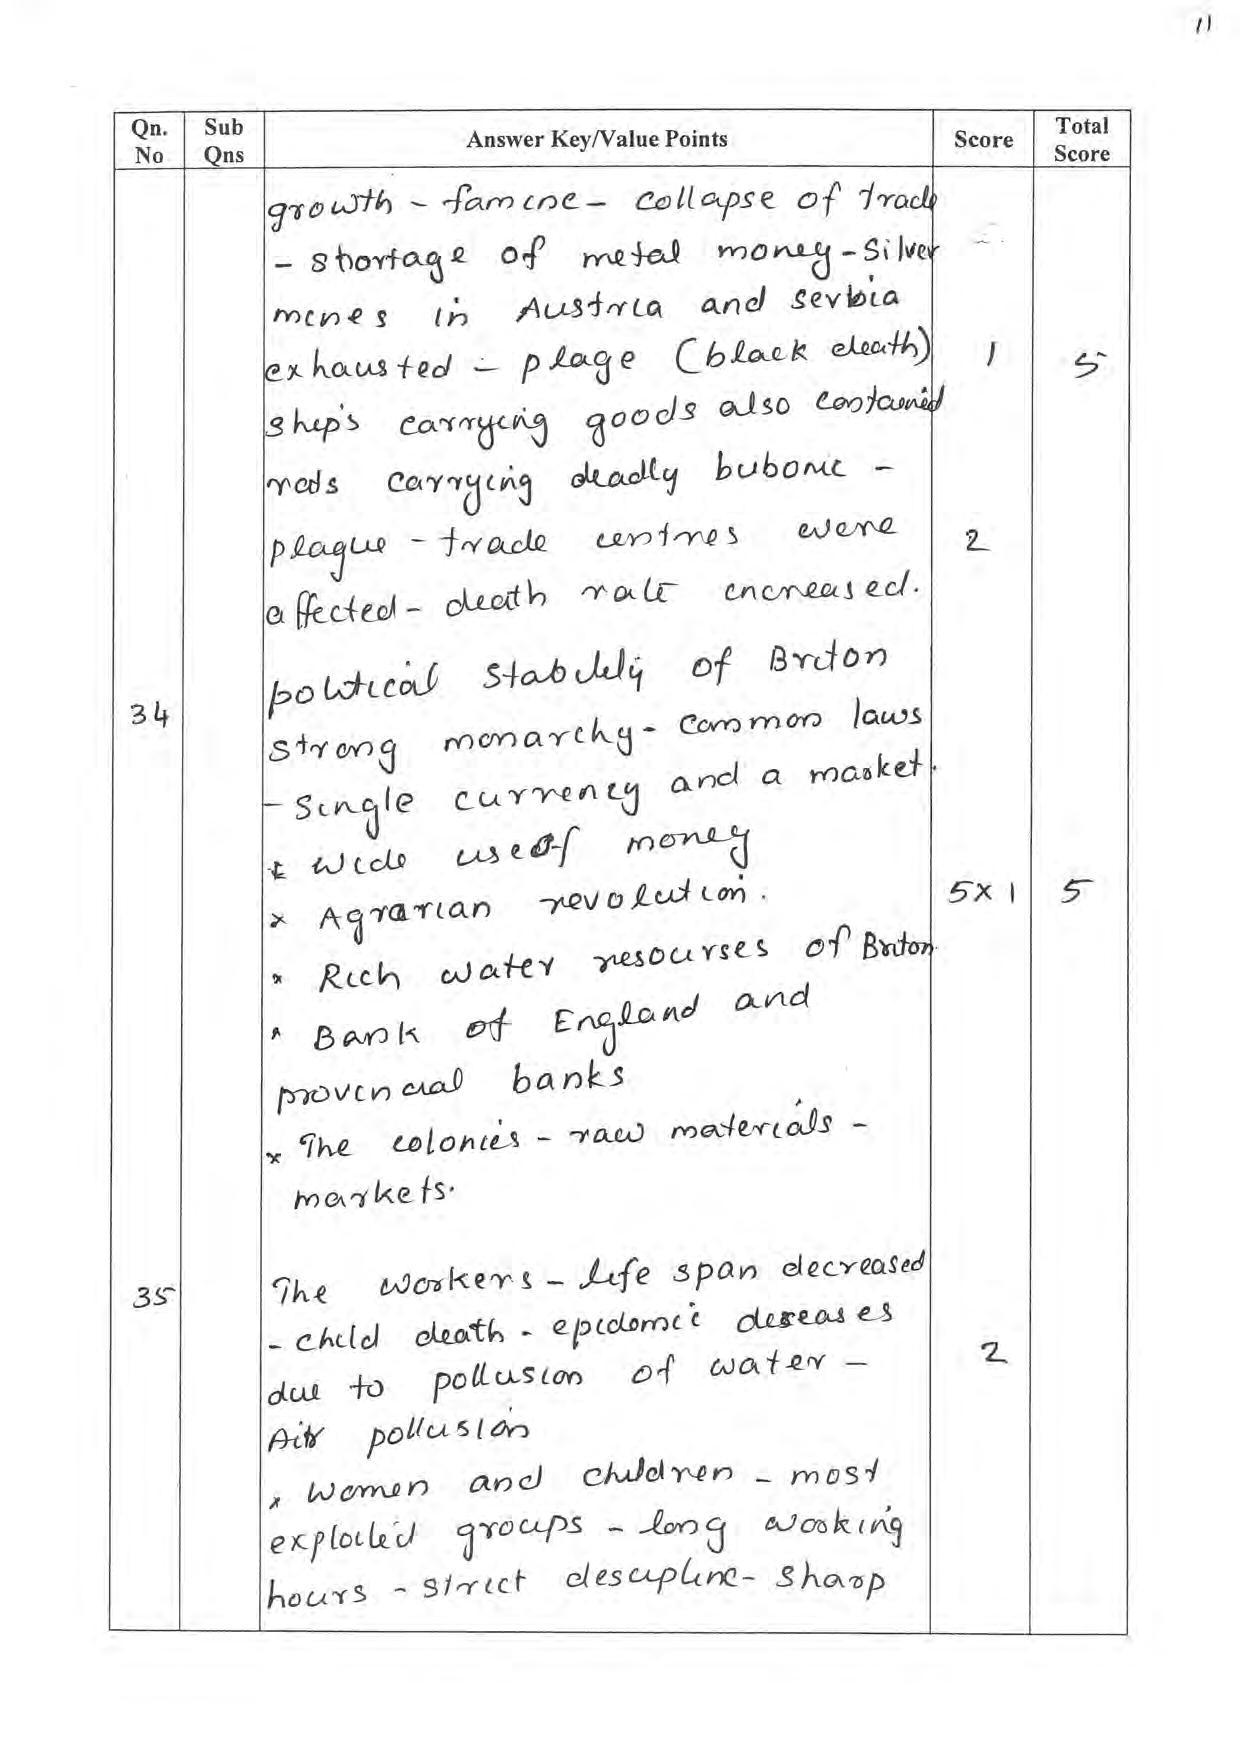 11
Qn. No
Sub Qns
Answer Key/Value Points
Score
Total Score
growth - famine - collapse of trade
- shortage of metal money - Silver
mines in Austria and serbia
exhausted - plage (black death) 1 5
ship's carrying goods also contained
rats carrying deadly bubonic -
plague - trade centres were 2
affected - death rate increased.
34 political stability of Briton
strong monarchy - common laws
- Single currency and a market.
* Wide use of money
* Agrarian revolution. 5x1 5
* Rich water resourses of Briton
* Bank of England and
provincial banks
* The colonies - raw materials -
markets.
35 The workers - life span decreased
- child death - epidomic deseases 2
due to pollusion of water -
Air pollusion
* Women and children - most
exploited groups - long working
hours - strict descipline - sharp